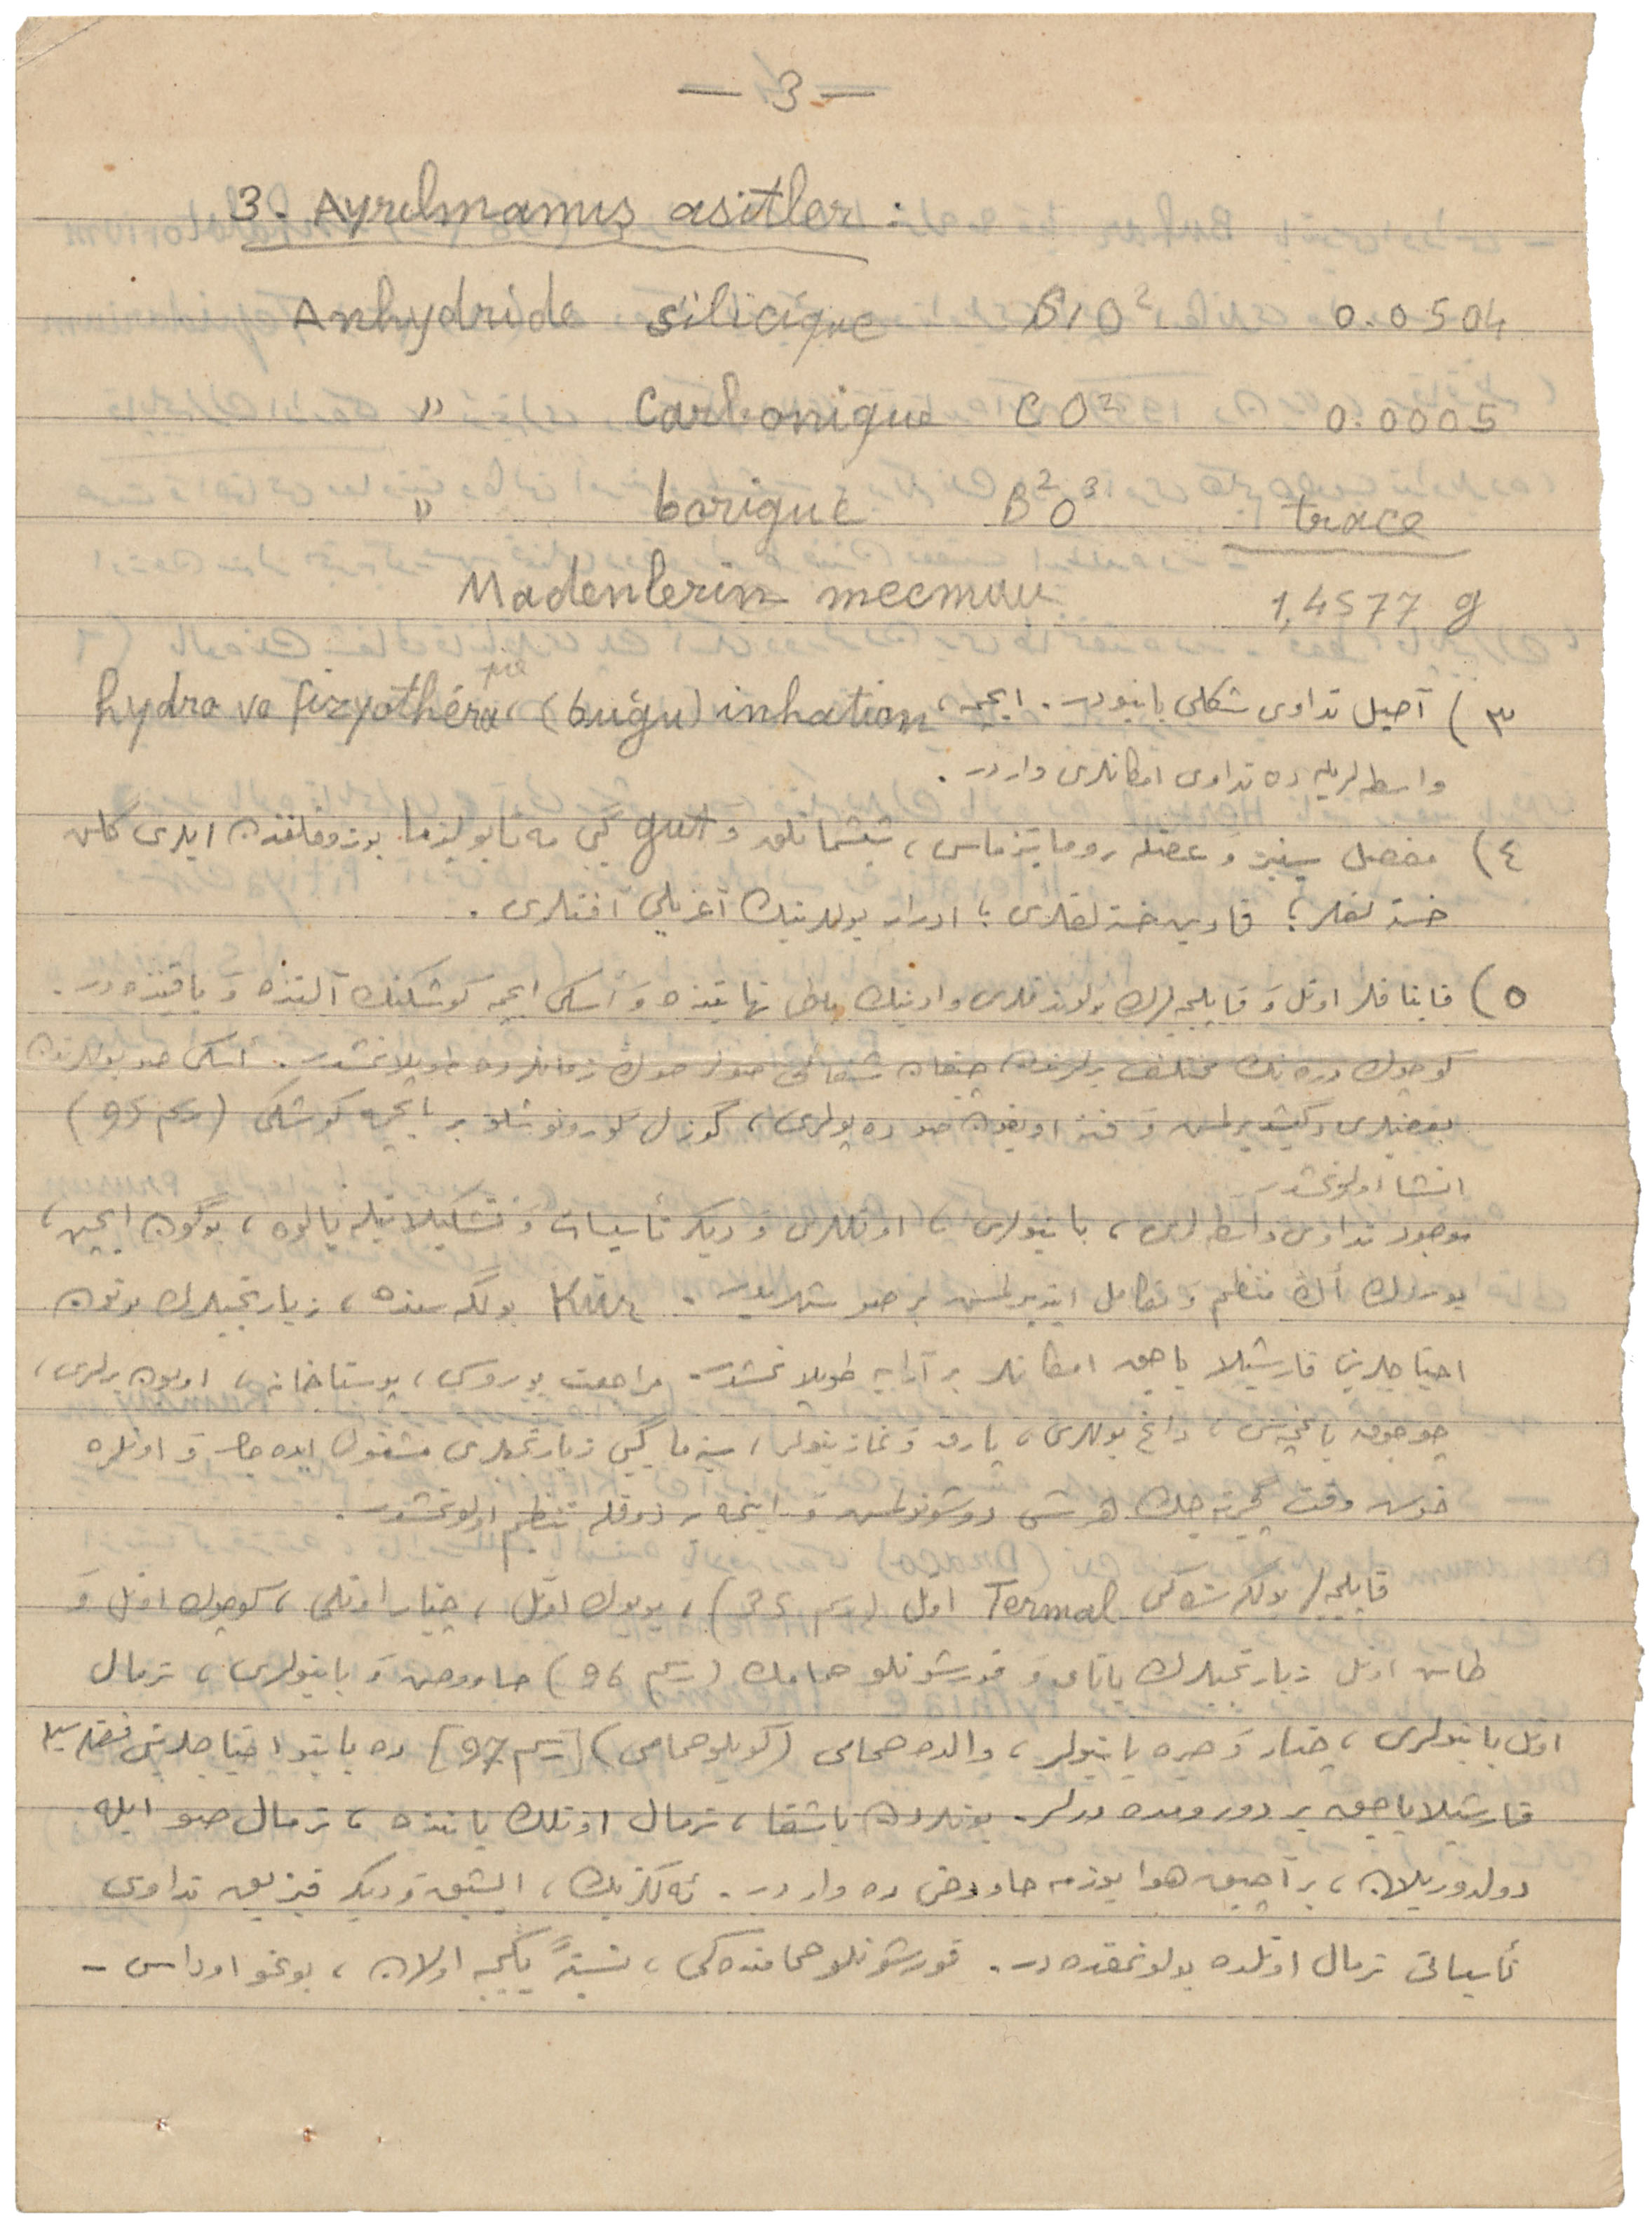 — 3 —
3. Ayrılmamış asitler :
Anhydride silicique SiO² 0.0504
" Carbonique CO² 0.0005
" borique B²O³ trace
Madenlerin mecmuu 1,4577 g
٣) آصیل تداوی شکلی بانیودر. ایچمه، hydro ve fizyothérapie، (buğu) inhation
واسطه لریله ده تداوی امکانلری واردر.
٤) مفصل سینیر و عضله روماتیزماسی، شیشمانلق و gut گبی مه تابولیزما بوزوقلغندن ایلری کلن
خسته لقلر؛ قادین خسته لقلری؛ ادرار یوللرینك آغریلی آفتلری.
٥) قایناقلر اوتل و قاپلیجه لرك بولوندقلری وادینك باطی نهایتنده و أسکی ایچمه کوشکنك آلتنده و یاقیننده در.
کوچوك دره نك مختلف یرلرندن چیقان شفالی صولر صوك زمانلرده طوپلانمشدر. أسکی صو یوللرندن
بعضیلری دگیشدیرلمش و فنه اویغون صو ده پولری، گوزل گورونوشلو بر ایچمه کوشکی (رسم 95)
انشا اولونمشدر
موجود تداوی واسطه لری، بانیولری، اوتللری و دیگر تأسیسات و تشکیلاتیله یالوه، بوگون ایچین،
یوردك أڭ منتظم و تکامل ایتدیرلمش بر صو شهریدر. Kür بولگه سنده، زیارتجیلرك بوتون
احتیاجلرینی قارشیلایاجق امکانلر بر آرایه طوپلانمشدر. مراجعت بوروسی، پوستاخانه، اویون یرلری،
چوجوق باغچه سی، داغ یوللری، پارق و غازینولر، سینه ما گبی زیارتجیلری مشغول ایده جك و اونلره
خوش وقت گچیرته جك هر شی دوشونولمش و اینجه بر ذوقله تنظیم اولونمشدر.
قاپلیجه لر بولگه سنده کی Termal اوتل (رسم 35)، بویوك اوتل، چینار اوتلی، کوچوك اوتل و
طاش اوتل زیارتجیلرك یاتاق و قورشونلو حمامك (رسم 96) حاووضی و بانیولری، ترمال
اوتل بانیولری، چینار و صیره بانیولر، والده حمامی (کویلو حمامی) [رسم 97] ده بانیو احتیاجلرینی فضله سیله
قارشیلایاجق بر دورومده درلر. بونلردن باشقا، ترمال اوتلك یاننده، ترمال صو ایله
دولدوریلان، بر آچیق هوا یوزمه حاووضی ده واردر. ئه لکتریك، ایشیق و دیگر فیزیق تداوی
تأسیساتی ترمال اوتلده بولونمقده در. قورشونلو حمامنده کی، نسبةً یکیجه اولان، بوغو اوداسی -